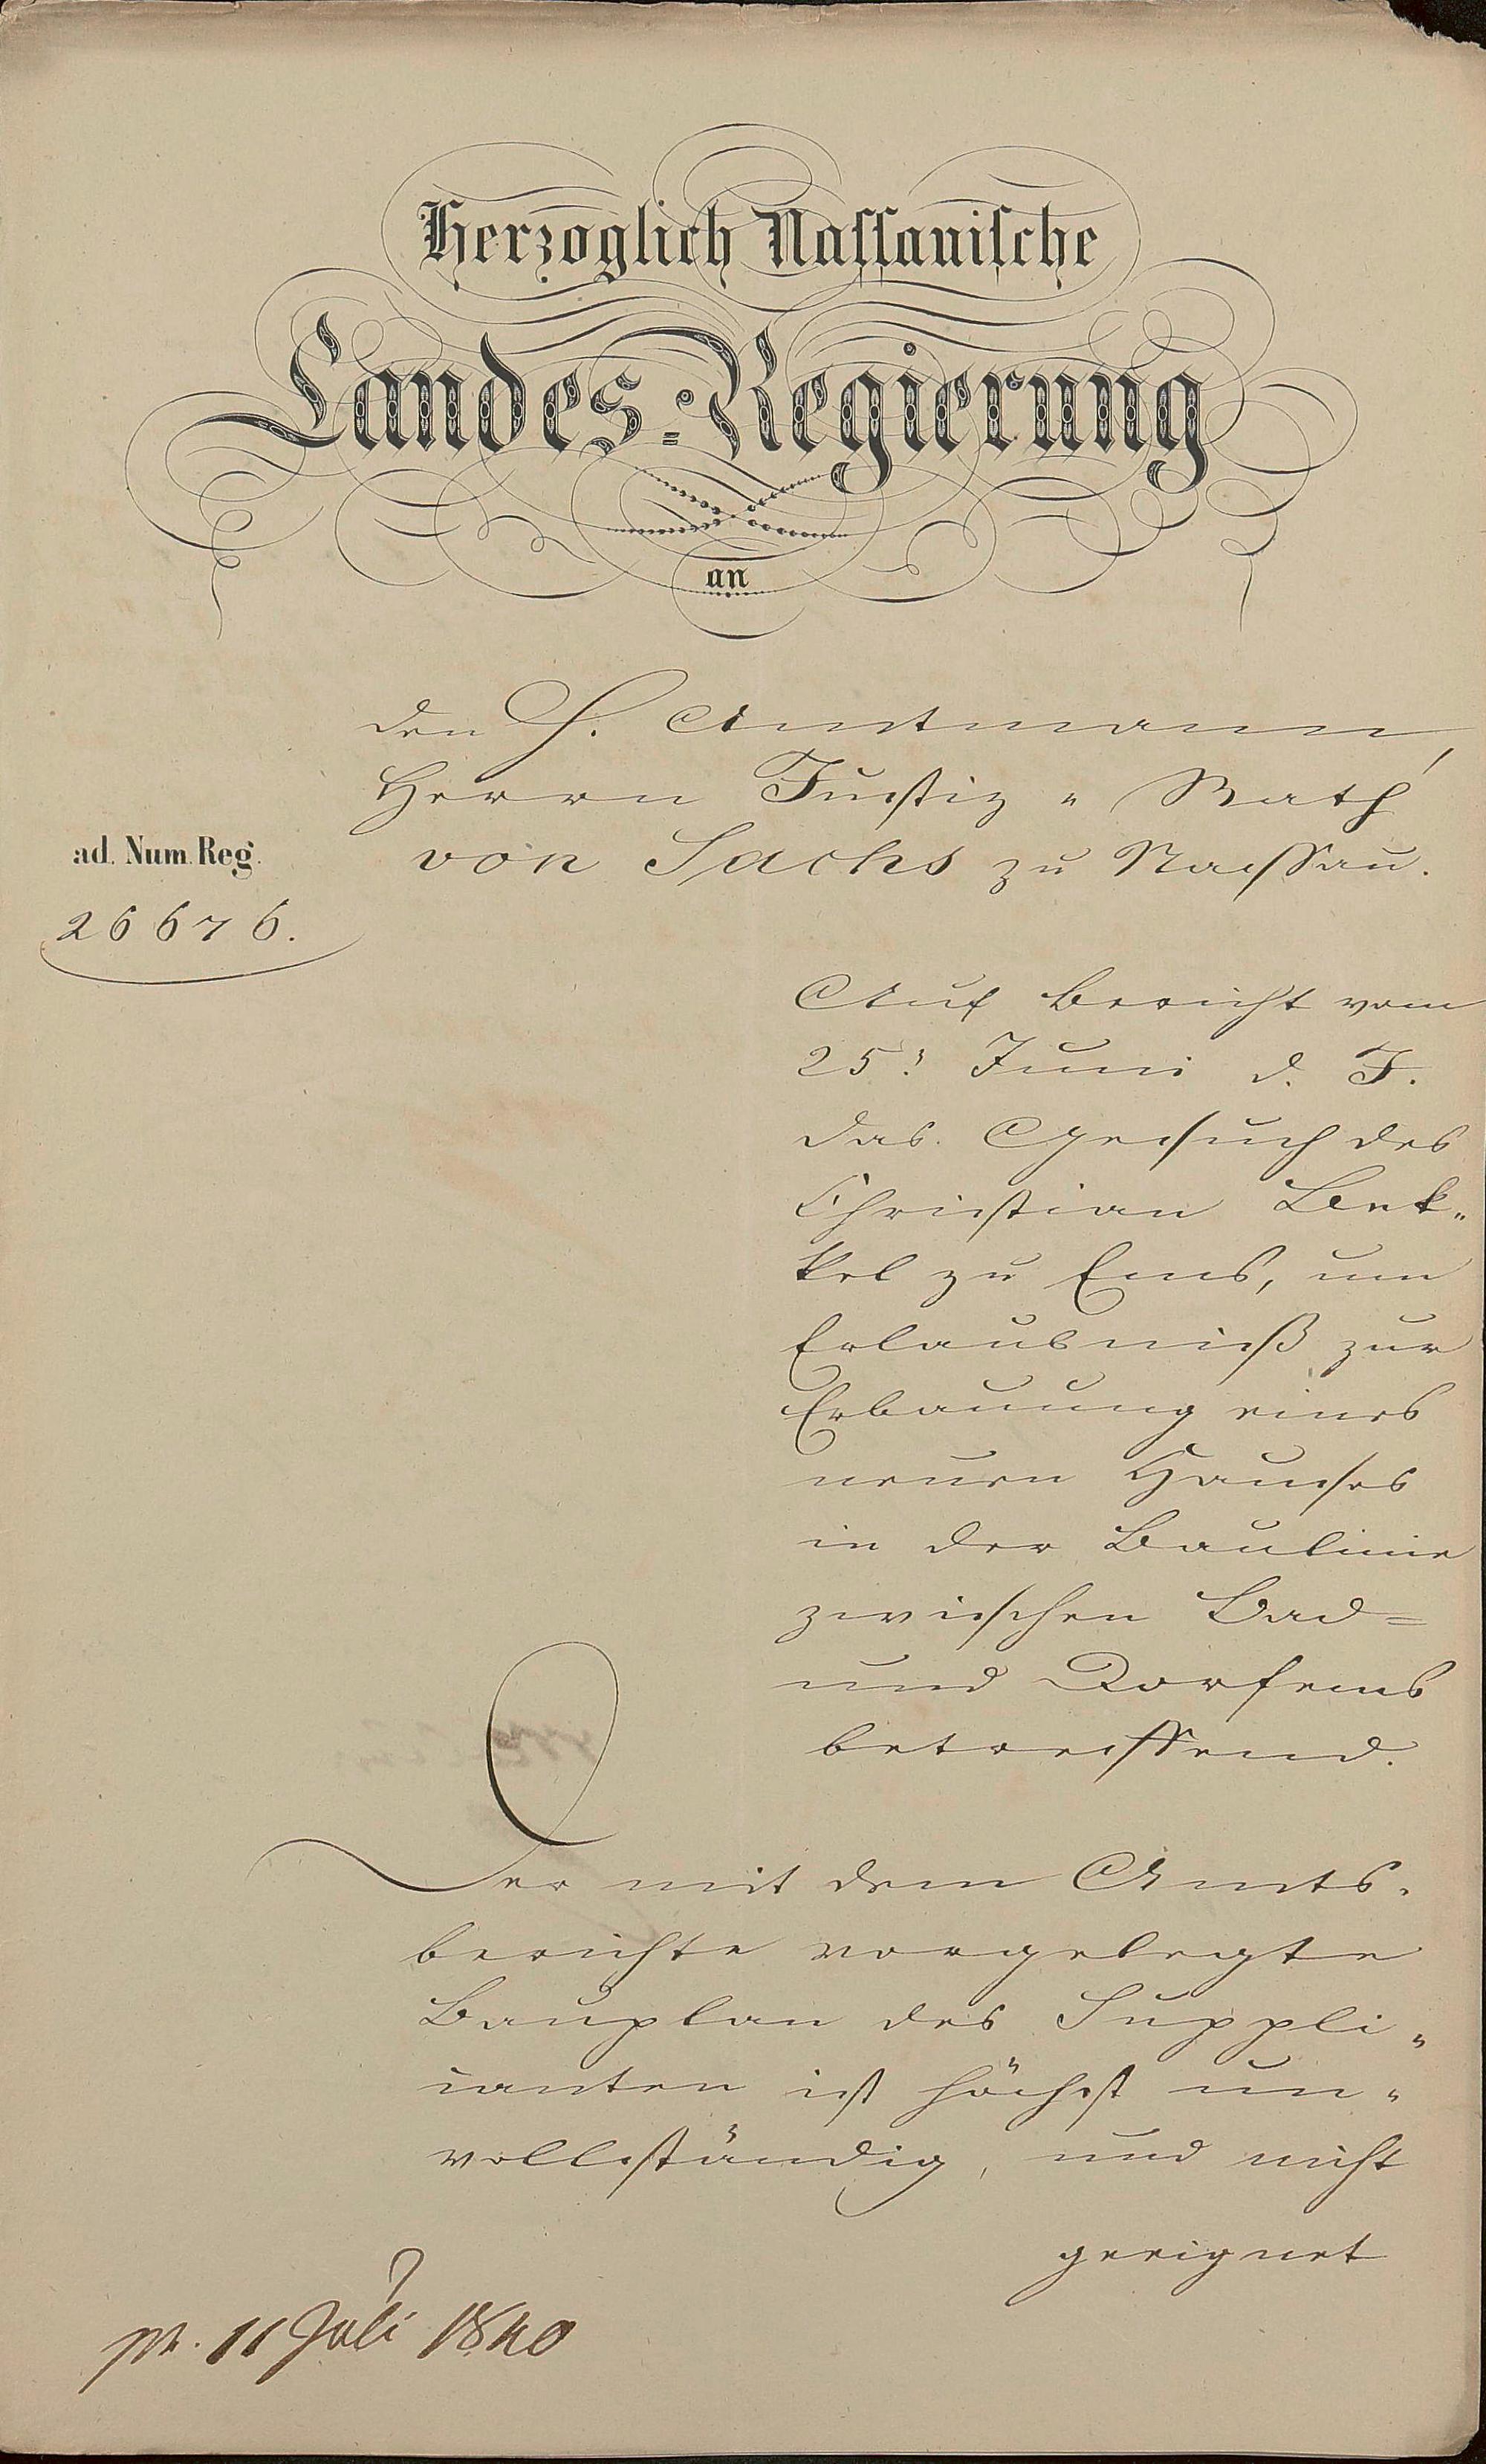 Herzoglich Nassauische
Landes-Regierung
an
den H. Amtmann,
Herrn Justiz-Rath
von Sachs zu Nassau.
ad. Num. Reg.
26676.
Auf Bericht vom
25. Juni d. J.
das Gesuch des
Christian Bek-
kel zu Ems, um
Erlaubniß zur
Erbauung eines
neuen Hauses
in der Baulinie
zwischen Bad-
und Dorfems
betreffend.
Der mit dem Amts-
berichte vorgelegte
Bauplan des Suppli-
canten ist höchst un-
vollständig, und nicht
geeignet
pr. 11 Juli 1840